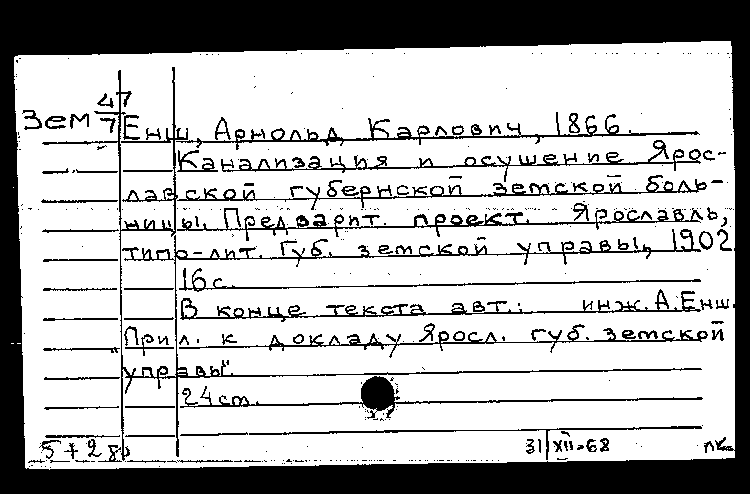 Зем 47/7
Енш, Арнольд Карлович, 1866.
Канализация и осушение Ярос-
лавской губернской земской боль-
ницы. Предварит. проект. Ярославль,
типо-лит. Губ. земской управы, 1902
16 с.
В конце текста авт.: инж. А. Енш.
"Прил. к докладу Яросл. губ. земской
управы".
24 ст.
31/XII-68